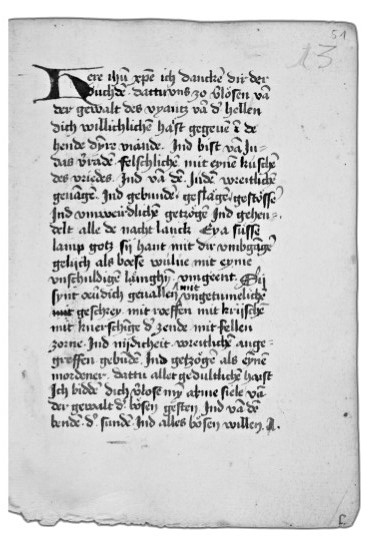 51
13
Here ihū xp̄e ich dancke dir der
douchde . dattu vns zo v̄losen vā
der gewalt des vyantz vā d' hellen
dich willichlichē haist gegeuē ī de
hende dyre viande . Ind bist vā Ju-
das v̄radē felschlichē mit eynē kuschē
des vriedes . Ind vā dē Judē wrentlichē
geuāgē . Ind gebundē . geslagē . gestossē
Ind vnweirdlichē getzogē Ind gehen-
delt alle de nacht lanck Eya susse
lamp gotz sij haut mit dir vmbgāgē
gelijch als boese wulue mit eyme
vnschuldigē vmgeent . Sij
synt ouer dich geuallē mit vngetumelichē
geschrey . mit woffen mit krijschē
mit knerschīge d' zende mit fellen
zorne . Ind nijdicheit wrentlichē ange-
greffen gebūdē . Ind getzogē als eynē
mordener . dattu allet gedultlichē haist
Ich biddē dich v̄lose myn arme siele vā
der gewalt d' bosen geisten Ind vā dē
bende . d' sundē . Ind alles bosen willen . A.